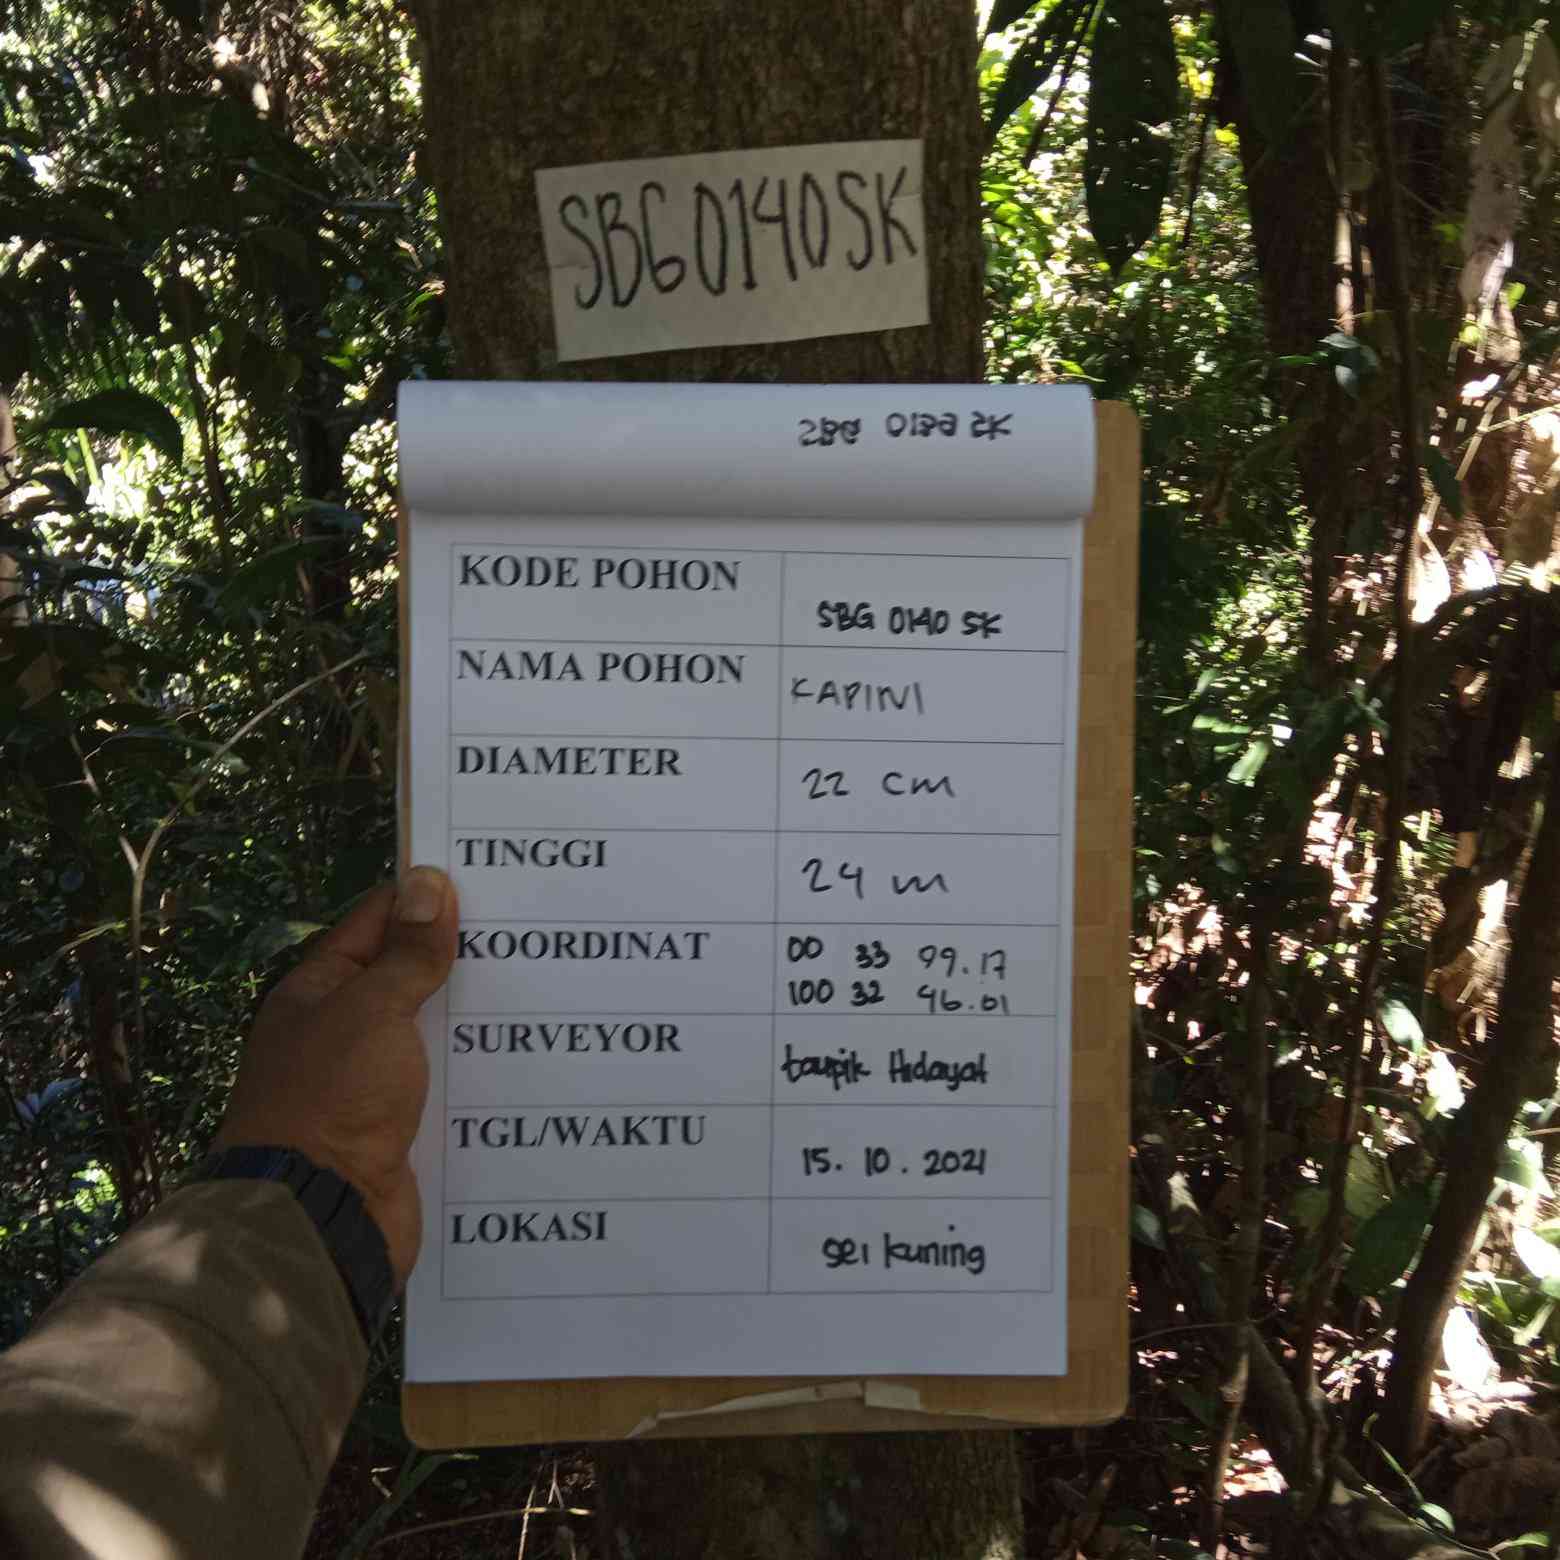 SBG0140SK
KODE POHON
SBG 0140 SK
NAMA POHON
KAPINI
DIAMETER
22 cm
TINGGI
24 m
KOORDINAT
00 33 99.17
100 32 46.01
SURVEYOR
taupik Hidayat
TGL/WAKTU
15. 10. 2021
LOKASI
sei kuning